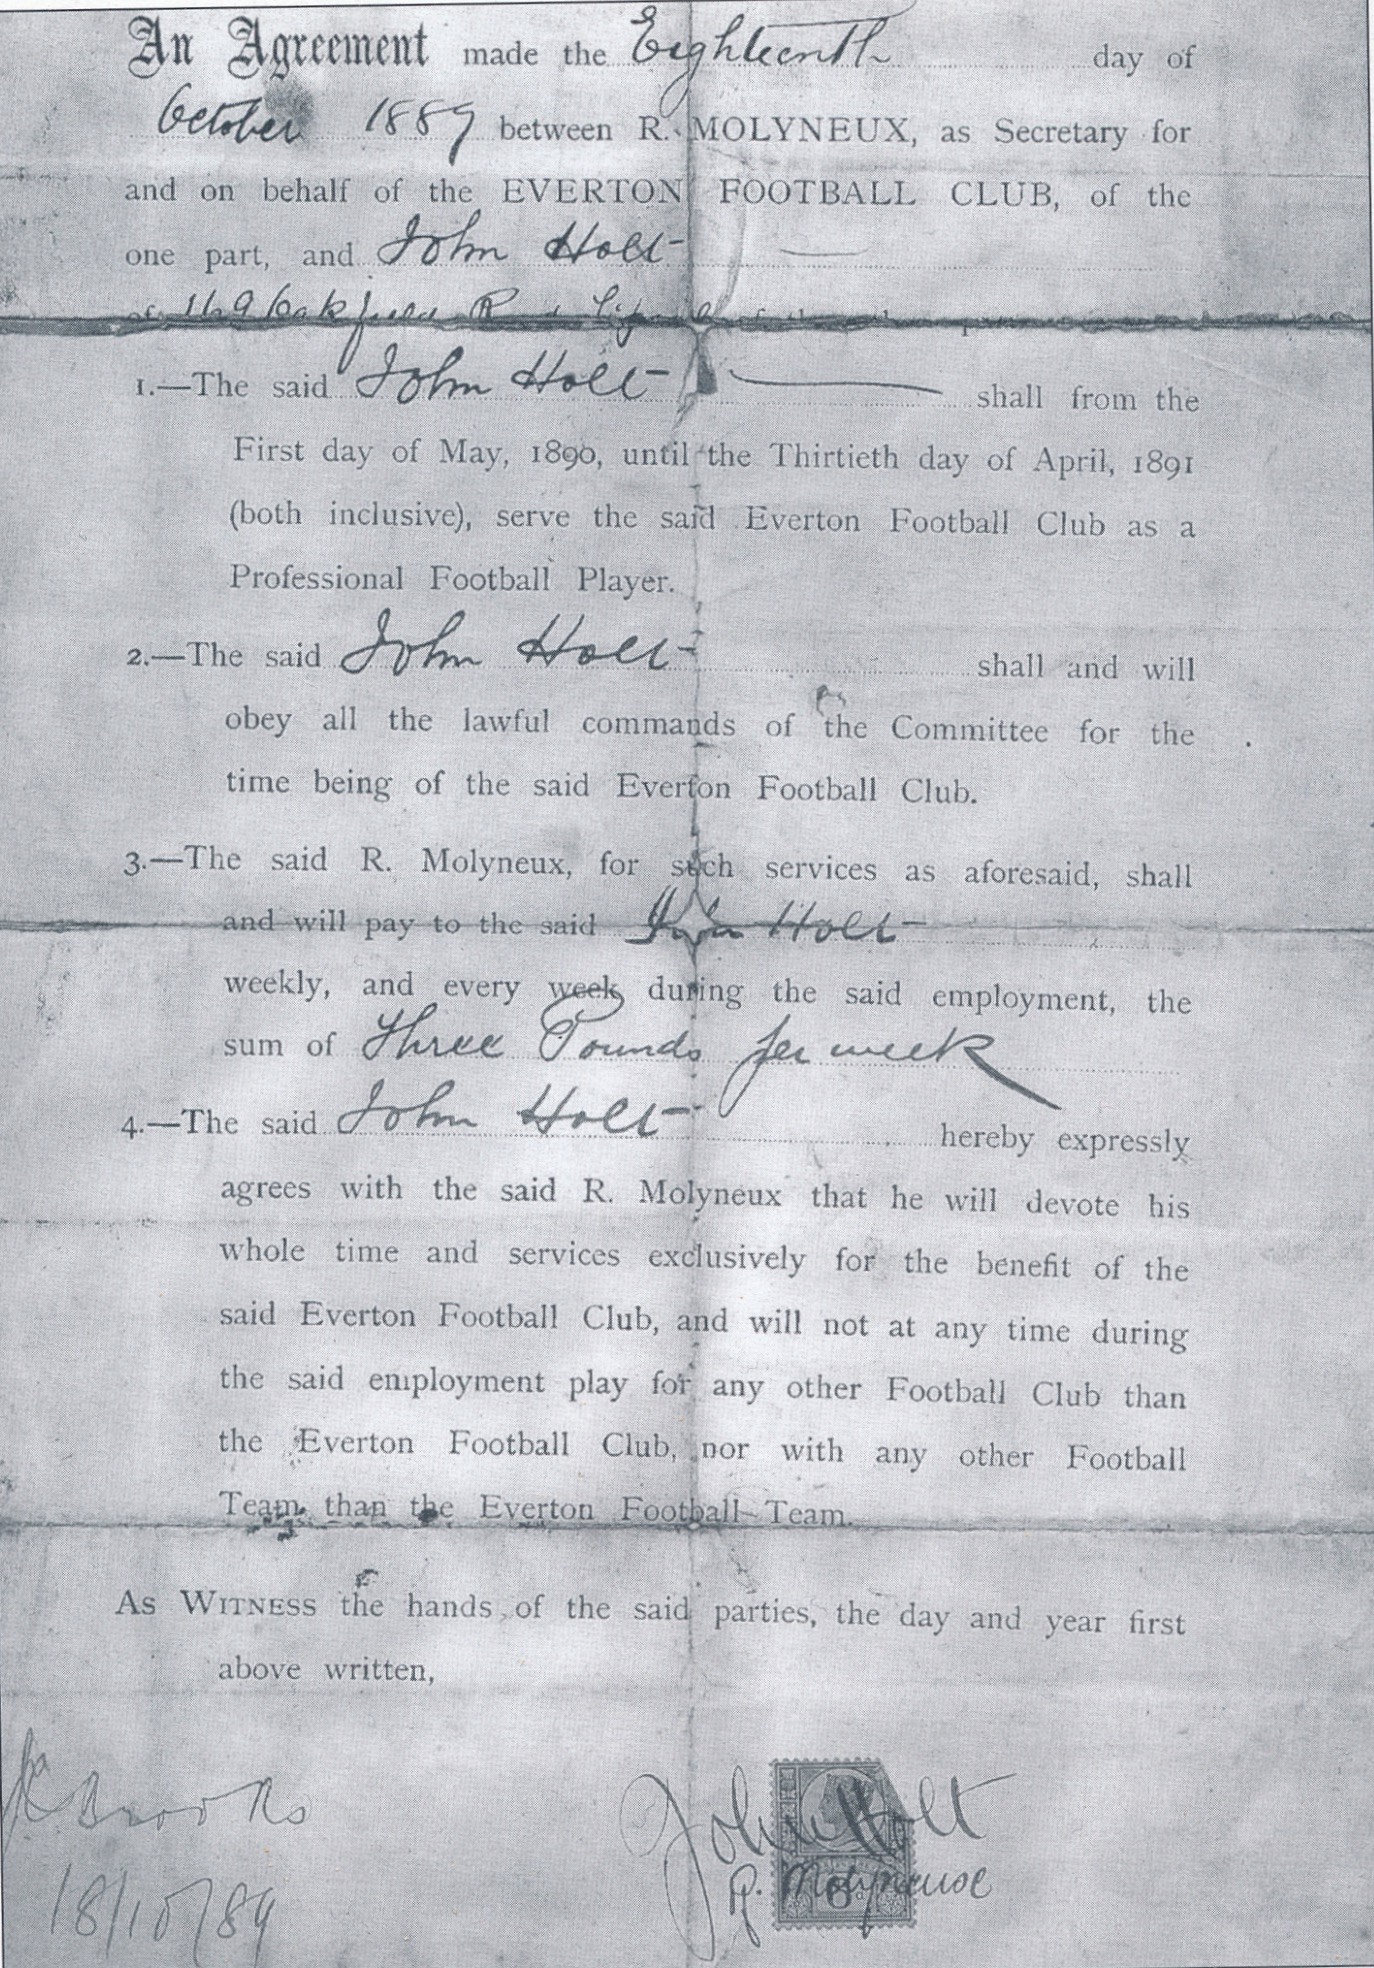 An Agreement made the Eighteenth day of
October 1889 between R. MOLYNEUX, as Secretary for
and on behalf of the EVERTON FOOTBALL CLUB, of the
one part, and John Holt
of Oakfield Road
1.—The said John Holt shall from the
First day of May, 1890, until the Thirtieth day of April, 1891
(both inclusive), serve the said Everton Football Club as a
Professional Football Player.
2.—The said John Holt shall and will
obey all the lawful commands of the Committee for the
time being of the said Everton Football Club.
3.—The said R. Molyneux, for such services as aforesaid, shall
and will pay to the said John Holt
weekly, and every week during the said employment, the
sum of Three Pounds per week
4.—The said John Holt hereby expressly
agrees with the said R. Molyneux that he will devote his
whole time and services exclusively for the benefit of the
said Everton Football Club, and will not at any time during
the said employment play for any other Football Club than
the Everton Football Club, nor with any other Football
Team than the Everton Football Team.
As WITNESS the hands of the said parties, the day and year first
above written,
Brooks
18/10/89
John Holt
R. Molyneux
6d